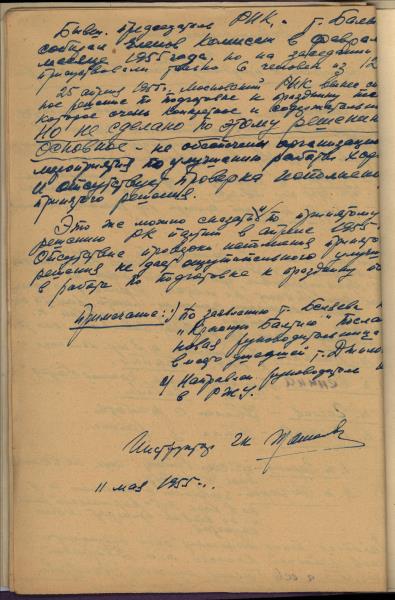 Бывш. председатель РИК. т. Балан
собирал членов комиссии в феврал
месяце 1955 года, но на заседании
присутствовали только 6 человек из 12
25 апреля 1955 г. Московский РИК вынес
ное решение по подготовке к празднику
которое очень конкретное и содержательно
Но не сделано по этому решению
основное - не обеспечены организацион
мероприятия по улучшению работы
и отсутствует проверка исполнения
принятого решения.
Это же можно сказать и по принятому
решению РК партии в апреле 1955
Отсутствие проверки исполнения принято
решения не дает ощутительного улучш
в работе по подготовке к празднику
Примечание: 1) По заявлению т. Беляева
"Красную Балтию" посла
новая руководительница
вместо ушедшей т.
2) Направлен руководитель
в РЖУ.
Инструктор ЦК
11 мая 1955 г.